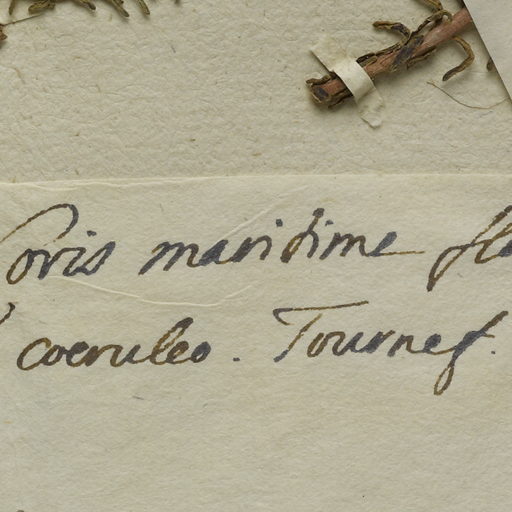 Coris maritime flo
coeruleo. Tournef.